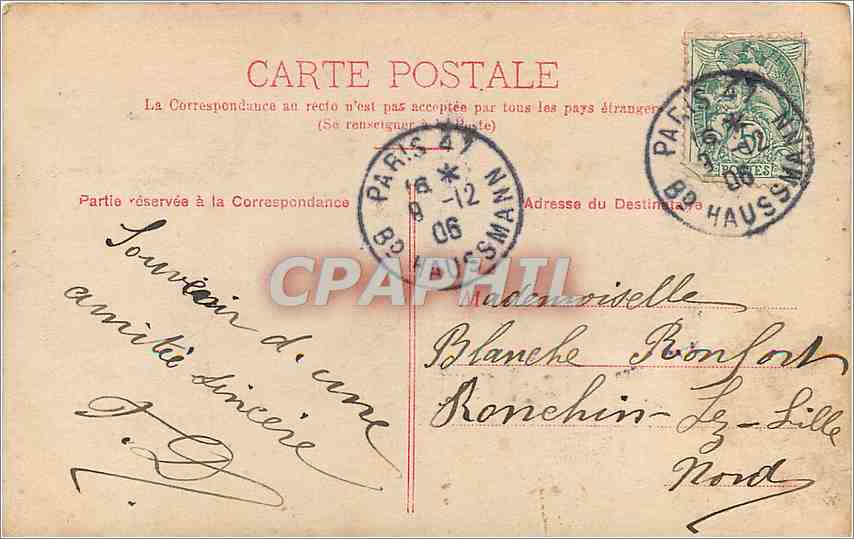 CARTE POSTALE
La Correspondance au recto n'est pas acceptée par tous les pays étrangers
(Se renseigner à la Poste)
Partie réservée à la Correspondance
Adresse du Destinataire
PARIS 47
16 *
8 -12
06
Bd HAUSSMANN
PARIS 47
16 *
-12
06
Bd HAUSSMANN
5
POSTES
CPAPHIL
Souvenir d'une
amitié sincère
Mademoiselle
Blanche Ronfort
Ronchin-Lez-Lille
Nord